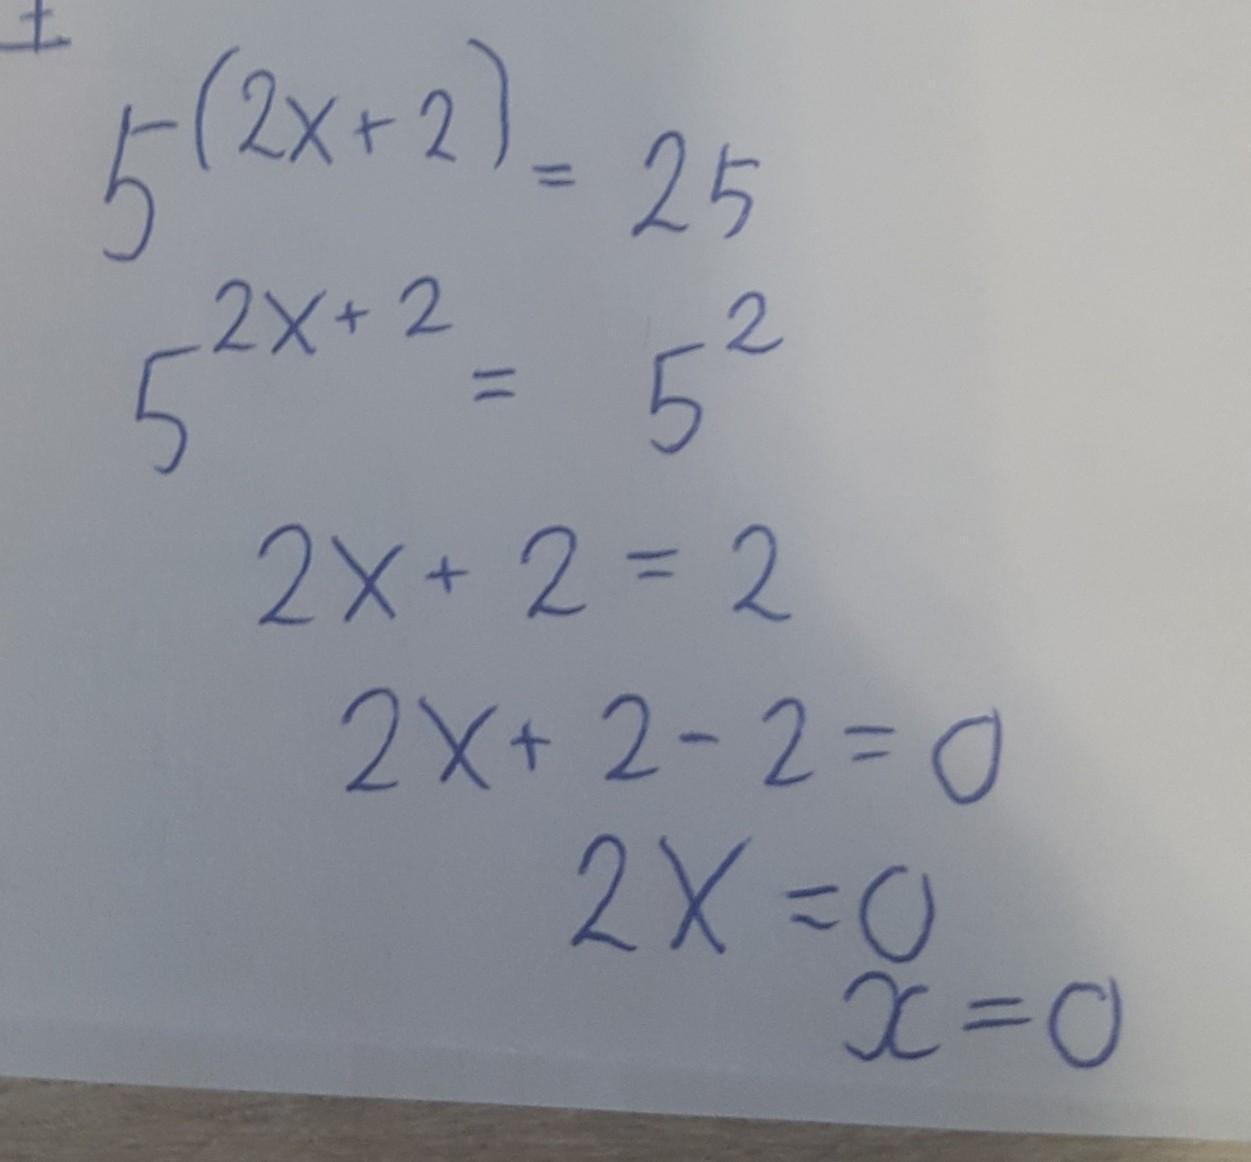 5^(2x+2) = 25
5^2x+2 = 5^2
2x + 2 = 2
2x + 2 - 2 = 0
2x = 0
x = 0